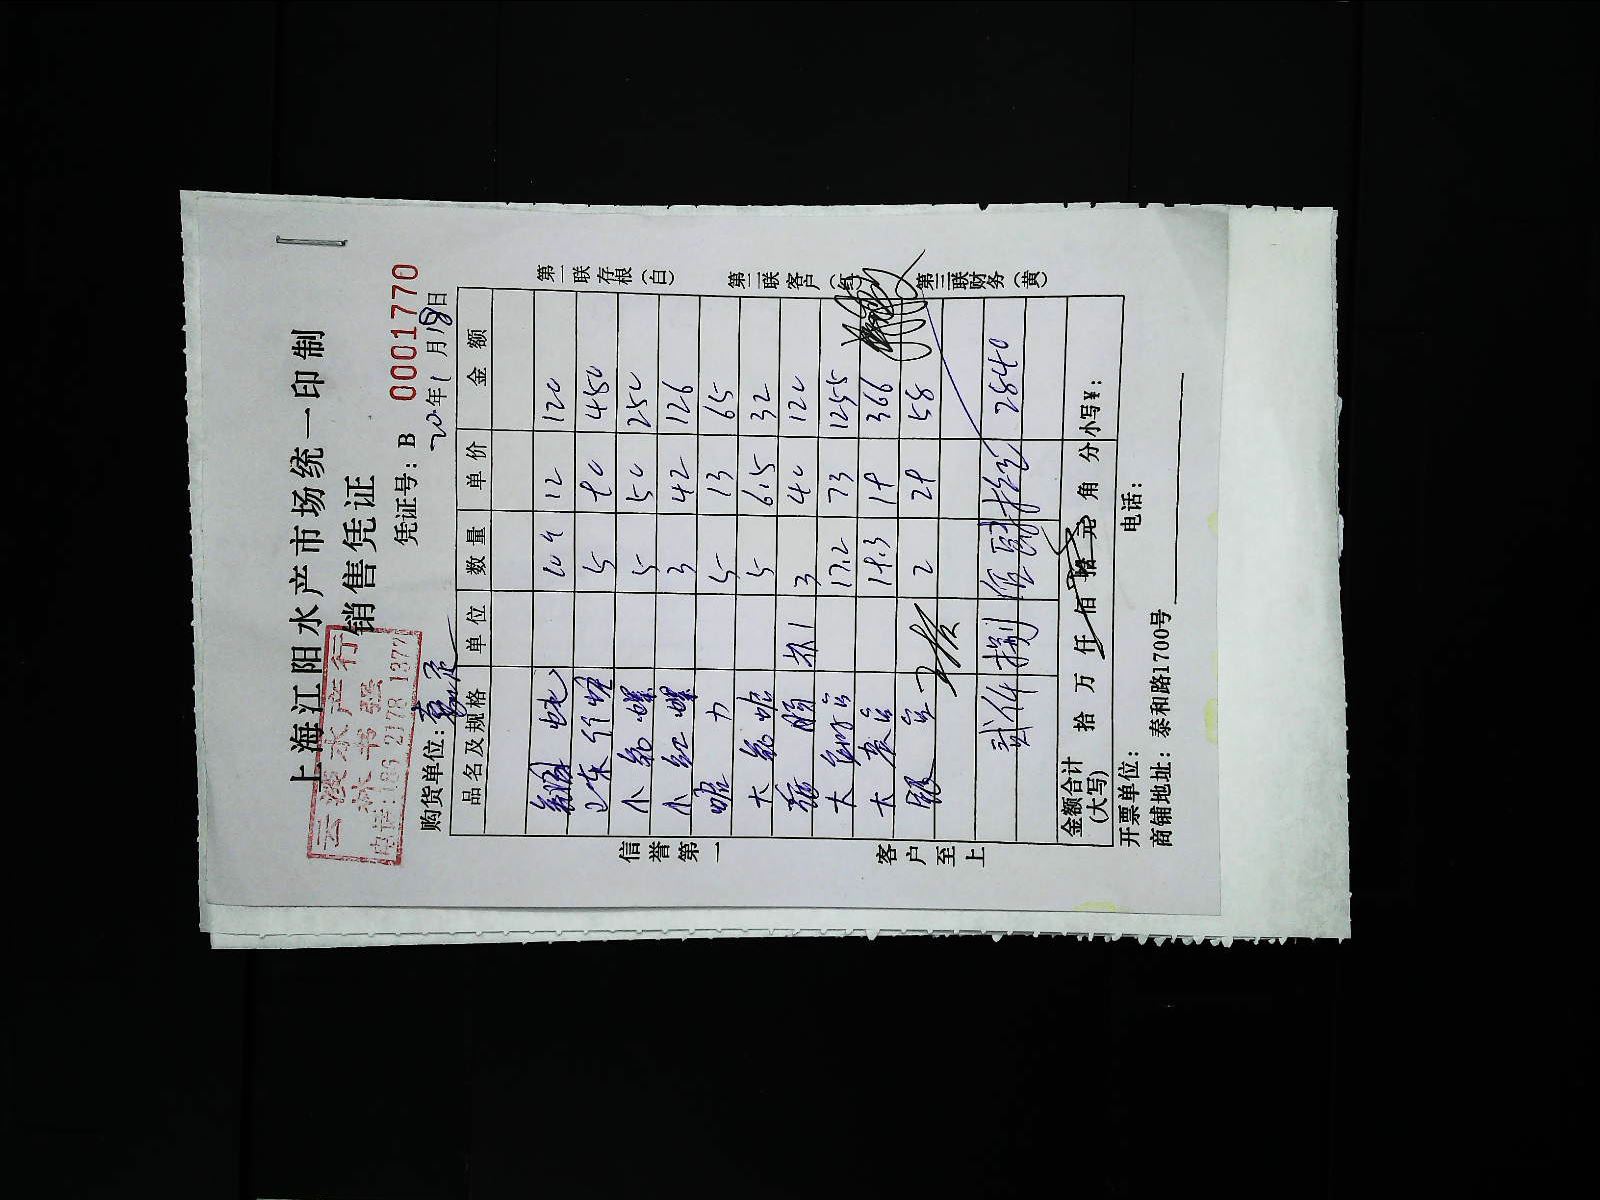 上海江阳水产市场统一印制
销售凭证
云 水产行
林书强
电话:186 2178 1377
凭证号: B 0001770
购货单位:
年 1 月 18 日
品名及规格 单位 数量 单价 金额
12 120
5 90 450
小 螺 5 50 250
小红螺 3 42 126
5 13 65
大 5 6.5 32
肠 3 40 120
大 17.2 73 1255
大 19.3 19 366
银 2 29 58
贰仟捌佰肆拾元 2840
金额合计
(大写)
拾 万 仟 佰 拾 元 角 分 小写¥:
开票单位: 电话:
商铺地址: 泰和路1700号
信誉第一
客户至上
第一联存根(白)
第二联客户(红)
第三联财务(黄)